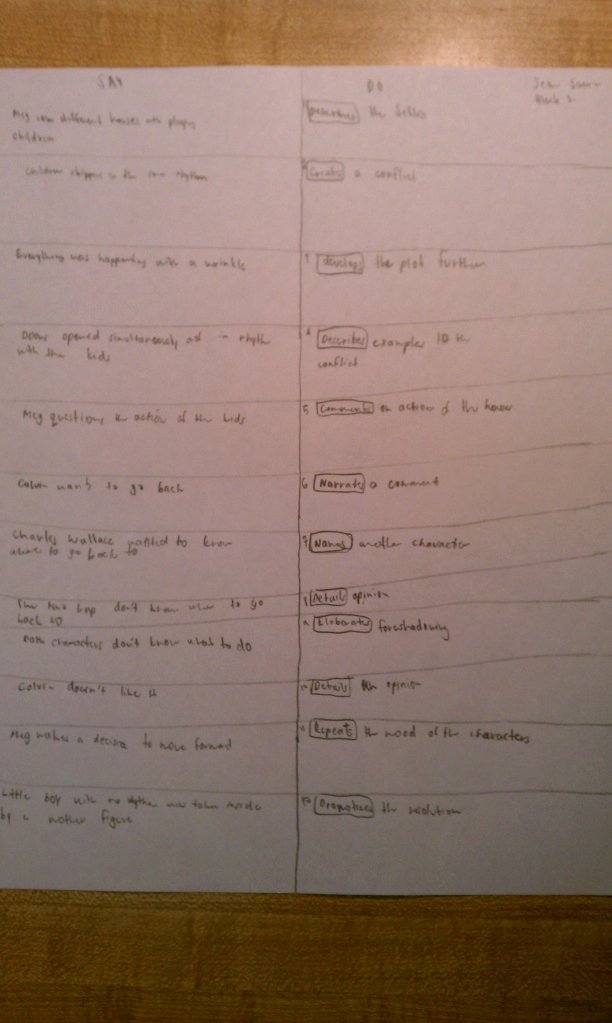 SAY
DO
Block 2
Meg saw different houses with playing
children
Describes the setting
children skipped in the same rhythm
Create a conflict
Everything was happening with a wrinkle
develops the plot further
Doors opened simultaneously and in rhythm
with the kids
4 Describes examples to the
conflict
Meg questions the action of the kids
5 Comments on action of the house
Calvin wants to go back
6 Narrates a comment
Charles Wallace wanted to know
where to go back to
7 Names another character
The two boys don't know where to go
back to
8 Details opinion
Both characters don't know what to do
Elaborates foreshadowing
Calvin doesn't like it
Details the opinion
Meg makes a decision to move forward
Repeats the mood of the characters
Little boy with no rhythm was taken inside
by a mother figure
12 Dramatizes the resolution